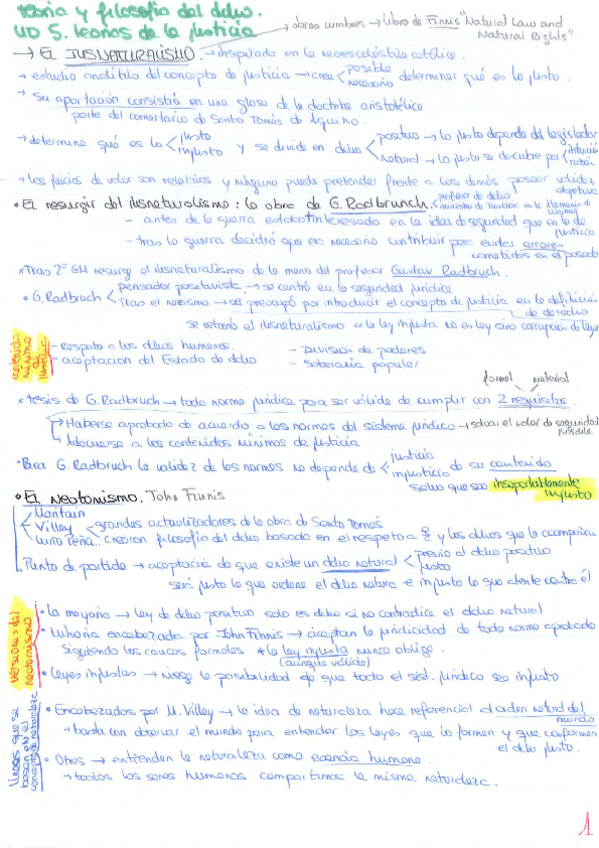 teoría y filosofía del dcho.
UD 5. teorías de la justicia
→ obras cumbres → libro de Finnis "Natural Law and Natural Rights"
→ El IUSNATURALISMO. → inspirado en la neoescolástica católica.
→ estudio analítico del concepto de justicia → cree posible necesario determinar qué es lo justo.
→ Su aportación consistió en una glosa de la doctrina aristotélica
parte del comentario de Santo Tomás de Aquino.
→ determina qué es lo justo injusto y se divide en dcho positivo → lo justo depende del legislador
natural → lo justo se descubre por intuición razón
→ los juicios de valor son relativos y ninguno puede pretender frente a los demás poseer validez objetiva
• El resurgir del iusnaturalismo: la obra de G. Radbruch. profesor de dcho ministro de Justicia en la Alemania de Weimar
- antes de la guerra estaba + interesado en la idea de seguridad que en la de justicia
- tras la guerra decidió que era necesario contribuir para evitar errores cometidos en el pasado
* Tras 2ª GM resurge el iusnaturalismo de la mano del profesor Gustav Radbruch.
• G. Radbruch pensador positivista → se centró en la seguridad jurídica
tras el nazismo → se preocupó por introducir el concepto de justicia en la definición de derecho
se retomó el iusnaturalismo → la ley injusta no es ley sino corrupción de ley
contenido mínimo de justicia
- Respeto a los dchos humanos.
- aceptación del Estado de dcho
- División de poderes
- Soberanía popular
formal material
* tesis de G. Radbruch → toda norma jurídica para ser válida de cumplir con 2 requisitos.
→ Haberse aprobado de acuerdo a las normas del sistema jurídico → salvar el valor de seguridad jurídica
→ Adecuarse a los contenidos mínimos de justicia
• Para G. Radbruch la validez de las normas no depende de justicia injusticia de su contenido
salvo que sea insoportablemente injusto
• El neotomismo. John Finnis
Maritain
Villey
grandes actualizadores de la obra de Santo Tomás
Crearon filosofía del dcho basado en el respeto a y los dchos que le acompañan
Punto de partida → aceptación de que existe un dcho natural previo al dcho positivo
justo
será justo lo que ordene el dcho natural e injusto lo que atente contra él
versiones del neotomismo
• la mayoría → ley de dcho positivo solo es dcho si no contradice el dcho natural
• Minoría encabezada por John Finnis → aceptan la juridicidad de toda norma aprobada
siguiendo los cauces formales → la ley injusta nunca obliga.
(aunque válida)
• leyes injustas → niega la posibilidad de que todo el sist. jurídico sea injusto
líneas que se basan en el concepto de naturaleza
• Encabezados por M. Villey → la idea de naturaleza hace referencia al orden natural del mundo
→ basta con observar el mundo para entender las leyes que lo forman y que conforman el dcho justo.
• Otros → entienden la naturaleza como esencia humana.
→ todos los seres humanos compartimos la misma naturaleza.
1